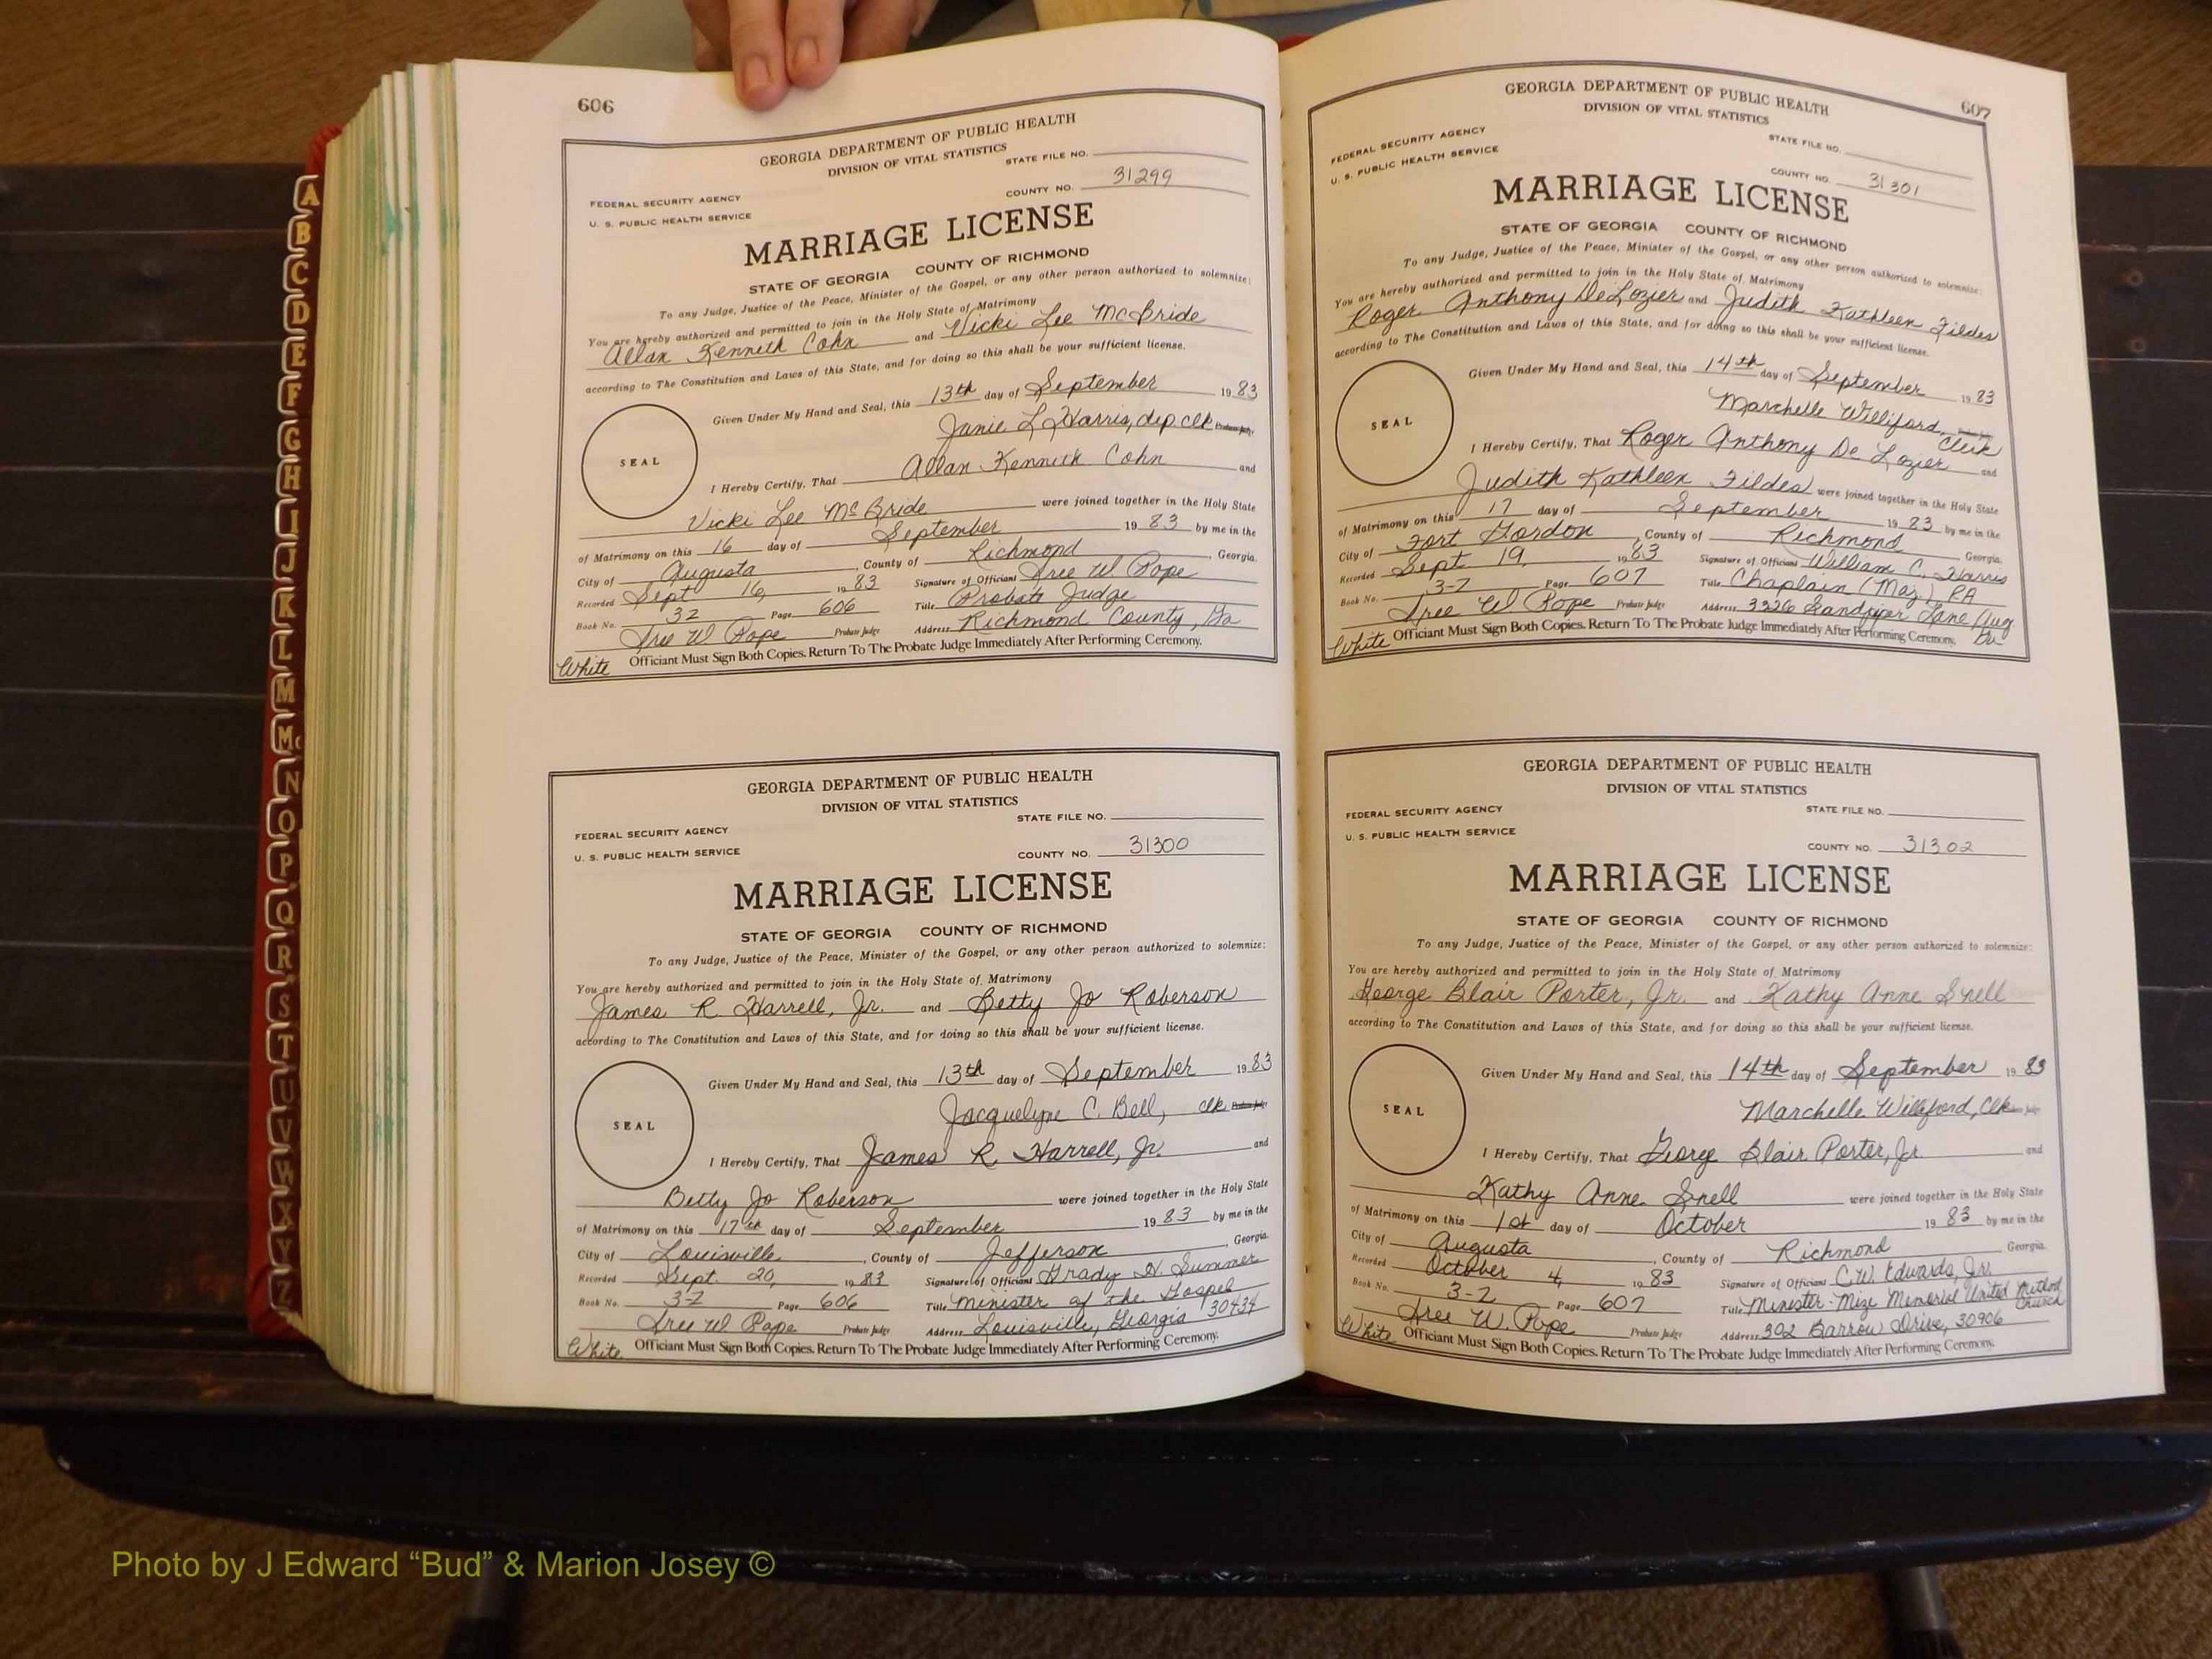 606
GEORGIA DEPARTMENT OF PUBLIC HEALTH
DIVISION OF VITAL STATISTICS
STATE FILE NO.
FEDERAL SECURITY AGENCY
U. S. PUBLIC HEALTH SERVICE
COUNTY NO. 31299
MARRIAGE LICENSE
STATE OF GEORGIA COUNTY OF RICHMOND
To any Judge, Justice of the Peace, Minister of the Gospel, or any other person authorized to solemnize:
You are hereby authorized and permitted to join in the Holy State of Matrimony
Allan Kenneth Cohn and Vicki Lee McBride
according to The Constitution and Laws of this State, and for doing so this shall be your sufficient license.
Given Under My Hand and Seal, this 13th day of September 1983
Janie L Harris, dep clk Probate Judge
SEAL
I Hereby Certify, That Allan Kenneth Cohn and
Vicki Lee McBride were joined together in the Holy State
of Matrimony on this 16 day of September 1983 by me in the
City of Augusta, County of Richmond, Georgia.
Recorded Sept 16, 1983 Signature of Officiant Tree W Pope
Book No. 32 Page 606 Title Probate Judge
Tree W Pope Probate Judge Address Richmond County, Ga
White Officiant Must Sign Both Copies. Return To The Probate Judge Immediately After Performing Ceremony.
GEORGIA DEPARTMENT OF PUBLIC HEALTH
DIVISION OF VITAL STATISTICS
STATE FILE NO.
FEDERAL SECURITY AGENCY
U. S. PUBLIC HEALTH SERVICE
COUNTY NO. 31300
MARRIAGE LICENSE
STATE OF GEORGIA COUNTY OF RICHMOND
To any Judge, Justice of the Peace, Minister of the Gospel, or any other person authorized to solemnize:
You are hereby authorized and permitted to join in the Holy State of Matrimony
James R. Harrell, Jr. and Betty Jo Roberson
according to The Constitution and Laws of this State, and for doing so this shall be your sufficient license.
Given Under My Hand and Seal, this 13th day of September 1983
Jacquelyne C. Bell, clk Probate Judge
SEAL
I Hereby Certify, That James R. Harrell, Jr. and
Betty Jo Roberson were joined together in the Holy State
of Matrimony on this 17th day of September 1983 by me in the
City of Louisville, County of Jefferson, Georgia.
Recorded Sept. 20, 1983 Signature of Officiant Grady H. Summer
Book No. 3-2 Page 606 Title Minister of the Gospel
Tree W Pope Probate Judge Address Louisville, Georgia 30434
White Officiant Must Sign Both Copies. Return To The Probate Judge Immediately After Performing Ceremony.
607
GEORGIA DEPARTMENT OF PUBLIC HEALTH
DIVISION OF VITAL STATISTICS
FEDERAL SECURITY AGENCY
STATE FILE NO.
U. S. PUBLIC HEALTH SERVICE
COUNTY NO. 31301
MARRIAGE LICENSE
STATE OF GEORGIA COUNTY OF RICHMOND
To any Judge, Justice of the Peace, Minister of the Gospel, or any other person authorized to solemnize:
You are hereby authorized and permitted to join in the Holy State of Matrimony
Roger Anthony DeLozier and Judith Kathleen Fildes
according to The Constitution and Laws of this State, and for doing so this shall be your sufficient license.
Given Under My Hand and Seal, this 14th day of September 1983
Marchelle Williford, Clerk
SEAL
I Hereby Certify, That Roger Anthony De Lozier and
Judith Kathleen Fildes were joined together in the Holy State
of Matrimony on this 17 day of September 1983 by me in the
City of Fort Gordon, County of Richmond Georgia.
Recorded Sept. 19, 1983 Signature of Officiant William C. Harris
Book No. 3-2 Page 607 Title Chaplain (Maj) RA
Tree W Pope Probate Judge Address 3326 Sandpiper Lane Aug Ga
White Officiant Must Sign Both Copies. Return To The Probate Judge Immediately After Performing Ceremony.
GEORGIA DEPARTMENT OF PUBLIC HEALTH
DIVISION OF VITAL STATISTICS
FEDERAL SECURITY AGENCY
STATE FILE NO.
U. S. PUBLIC HEALTH SERVICE
COUNTY NO. 31302
MARRIAGE LICENSE
STATE OF GEORGIA COUNTY OF RICHMOND
To any Judge, Justice of the Peace, Minister of the Gospel, or any other person authorized to solemnize:
You are hereby authorized and permitted to join in the Holy State of Matrimony
George Blair Porter, Jr. and Kathy Anne Snell
according to The Constitution and Laws of this State, and for doing so this shall be your sufficient license.
Given Under My Hand and Seal, this 14th day of September 1983
Marchelle Williford, Clk Probate Judge
SEAL
I Hereby Certify, That George Blair Porter, Jr. and
Kathy Anne Snell were joined together in the Holy State
of Matrimony on this 1st day of October 1983 by me in the
City of Augusta, County of Richmond Georgia.
Recorded October 4, 1983 Signature of Officiant C.W. Edwards, Jr.
Book No. 3-2 Page 607 Title Minister-Mize Memorial United Method Church
Tree W. Pope Probate Judge Address 302 Barrow Drive, 30906
White Officiant Must Sign Both Copies. Return To The Probate Judge Immediately After Performing Ceremony.
A
B
C
D
E
F
G
H
I
J
K
L
M
Mc
N
O
P
Q
R
S
T
U
V
W
X
Y
Z
Photo by J Edward “Bud” & Marion Josey ©